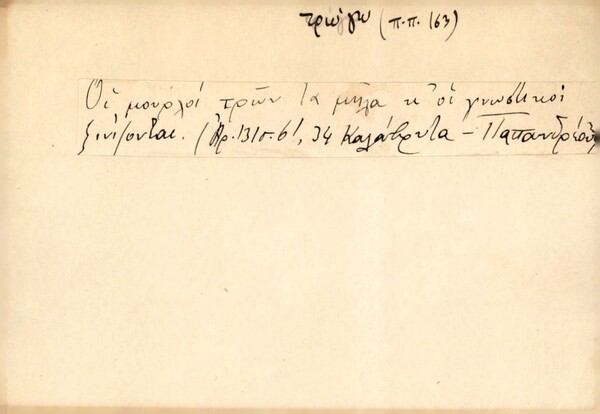 τρώγω (π.π. 163)
Οἱ μουρλοί τρῶν τὰ μῆλα κ' οἱ γνωστικοί
ξινίζονται. (Ἀρ. 1310-6!, 34 Καλάβρυτα - Παπανδρέου